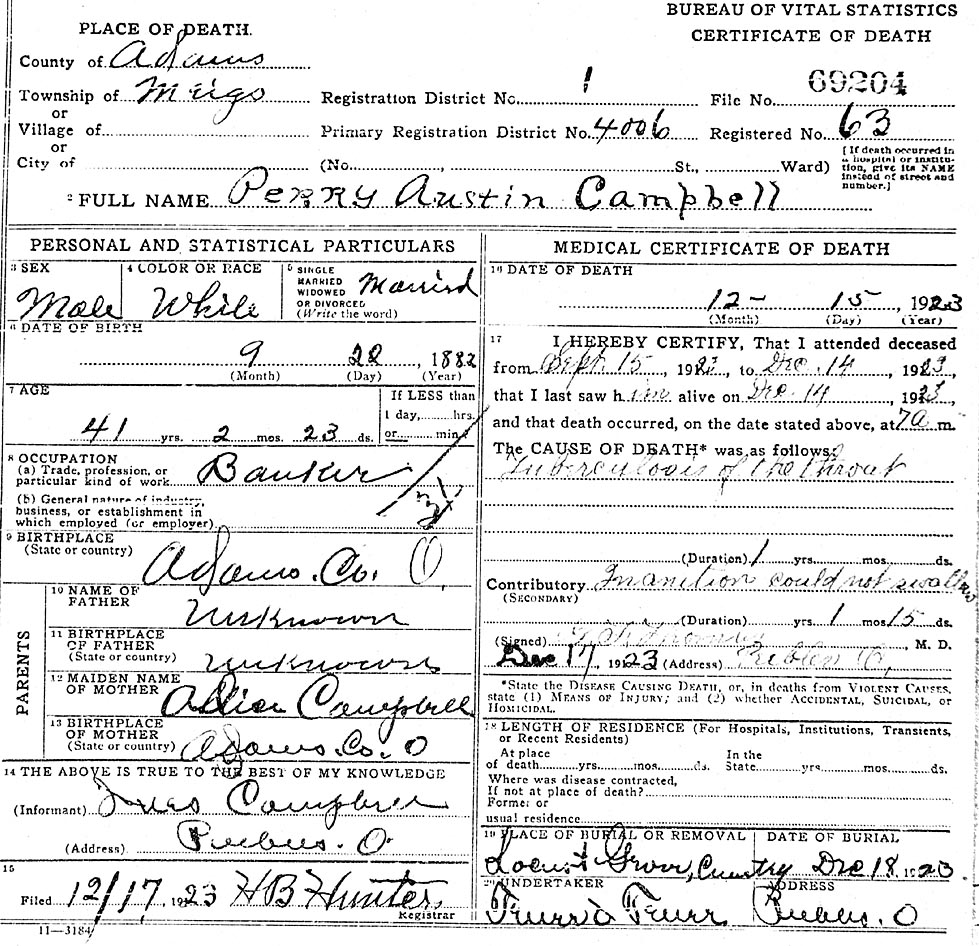 BUREAU OF VITAL STATISTICS
CERTIFICATE OF DEATH
PLACE OF DEATH.
County of Adams
Township of Meigs
or
Village of
or
City of
Registration District No. 1
File No. 69204
Primary Registration District No. 4006
Registered No. 63
(No. , St., Ward)
[If death occurred in
a hospital or institu-
tion, give its NAME
instead of street and
number.]
2 FULL NAME Perry Austin Campbell
PERSONAL AND STATISTICAL PARTICULARS
3 SEX
Male
4 COLOR OR RACE
White
5 SINGLE
MARRIED
WIDOWED
OR DIVORCED
(Write the word)
Married
6 DATE OF BIRTH
9 22 1882
(Month) (Day) (Year)
7 AGE
41 yrs. 2 mos. 23 ds.
If LESS than
1 day, hrs.
or min.
8 OCCUPATION
(a) Trade, profession, or
particular kind of work Banker
(b) General nature of industry,
business, or establishment in
which employed (or employer)
9 BIRTHPLACE
(State or country)
Adams. Co. O.
PARENTS
10 NAME OF
FATHER
Unknown
11 BIRTHPLACE
OF FATHER
(State or country)
Unknown
12 MAIDEN NAME
OF MOTHER
Allice Campbell
13 BIRTHPLACE
OF MOTHER
(State or country)
Adams. Co. O
14 THE ABOVE IS TRUE TO THE BEST OF MY KNOWLEDGE
(Informant) Campbell
(Address) Peebles. O
15
Filed 12/17, 1923 H B Hunter
Registrar
11—3184
MEDICAL CERTIFICATE OF DEATH
16 DATE OF DEATH
12 - 15 - 1923
(Month) (Day) (Year)
17 I HEREBY CERTIFY, That I attended deceased
from Sept. 15, 192 , to Dec. 14, 1923,
that I last saw him alive on Dec. 14, 1923,
and that death occurred, on the date stated above, at 7a m.
The CAUSE OF DEATH* was as follows:
Tuberculosis of the throat
(Duration) 1 yrs. mos. ds.
Contributory Inanition could not swallow
(SECONDARY)
(Duration) yrs. 1 mos. 15 ds.
(Signed) , M. D.
Dec 17, 1923 (Address) Peebles O.
*State the DISEASE CAUSING DEATH, or, in deaths from VIOLENT CAUSES,
state (1) MEANS OF INJURY; and (2) whether ACCIDENTAL, SUICIDAL, or
HOMICIDAL.
18 LENGTH OF RESIDENCE (For Hospitals, Institutions, Transients,
or Recent Residents)
At place
of death yrs. mos. ds.
In the
State yrs. mos. ds.
Where was disease contracted,
If not at place of death?
Former or
usual residence
19 PLACE OF BURIAL OR REMOVAL
Locust Grove,
DATE OF BURIAL
Dec 18, 1923
20 UNDERTAKER
ADDRESS
Peebles. O